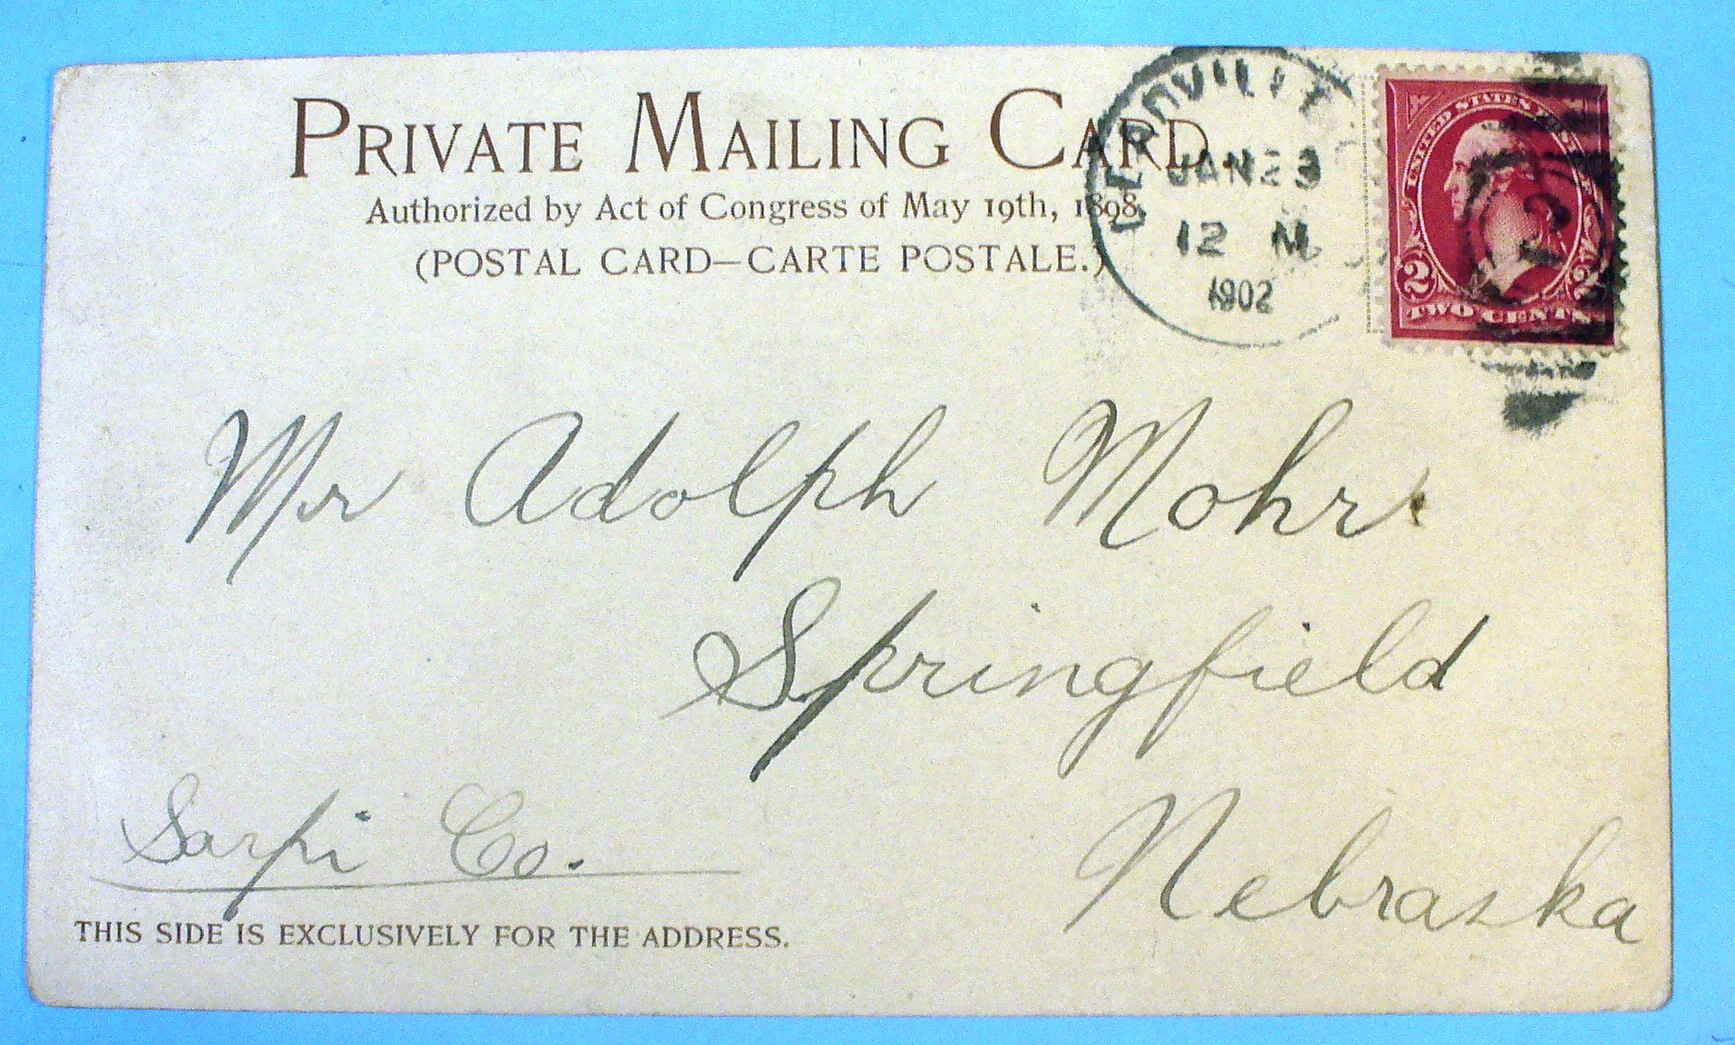 PRIVATE MAILING CARD
Authorized by Act of Congress of May 19th, 1898.
(POSTAL CARD—CARTE POSTALE.)
JAN 23
12 M
1902
UNITED STATES
2 2
TWO CENTS
Mr Adolph Mohr.
Springfield
Nebraska
Sarpi Co.
THIS SIDE IS EXCLUSIVELY FOR THE ADDRESS.